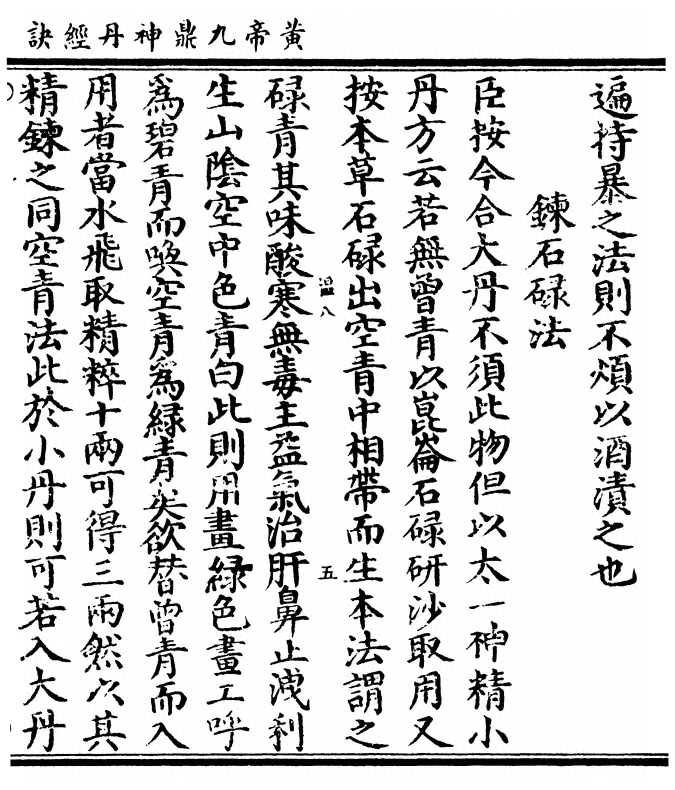 黃帝九鼎神丹經訣
遍持暴之法則不煩以酒漬之也
鍊石碌法
臣按今合大丹不須此物但以太一神精小
丹方云若無曾青以崑崙石碌研沙取用又
按本草石碌出空青中相帶而生本法謂之
温八
五
碌青其味酸寒無毒主益氣治肝鼻止洩利
生山陰空中色青白此則用畫緑色畫工呼
爲碧青而喚空青爲緑青矣欲替曾青而入
用者當水飛取精粹十兩可得三兩然以其
精鍊之同空青法此於小丹則可若入大丹